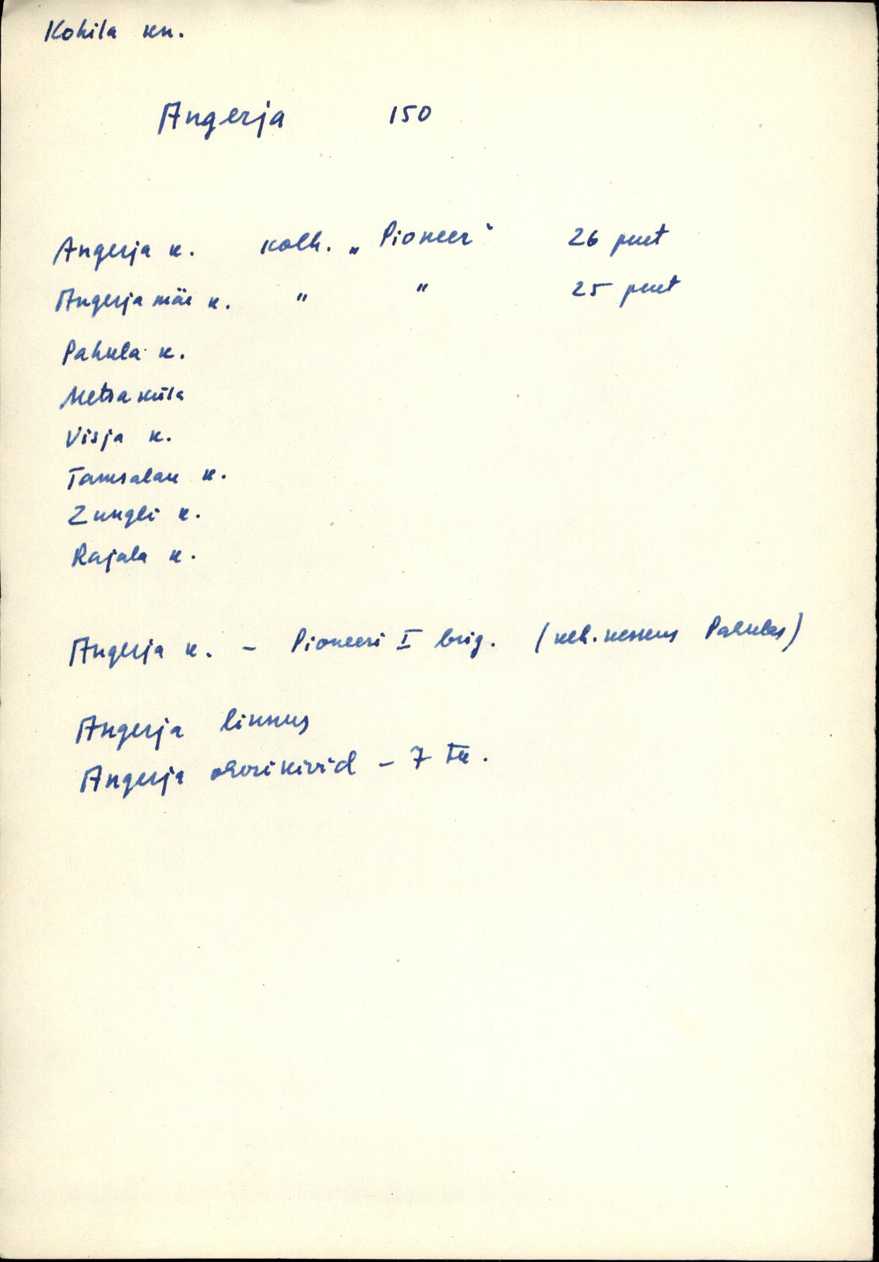 Kohila kn.
Angerja 150
Angerja k. kolh. „Pioneer" 26 peret
Angerja mäe k. " " 25 peret
Pahula k.
Metsaküla
Visja k.
Tamsalau k.
Zungli k.
Rajala k.
Angerja k. - Pioneeri I brig. (keh. keskus Pahulas)
Angerja linnus
Angerja ohvrikivid - 7 tk.